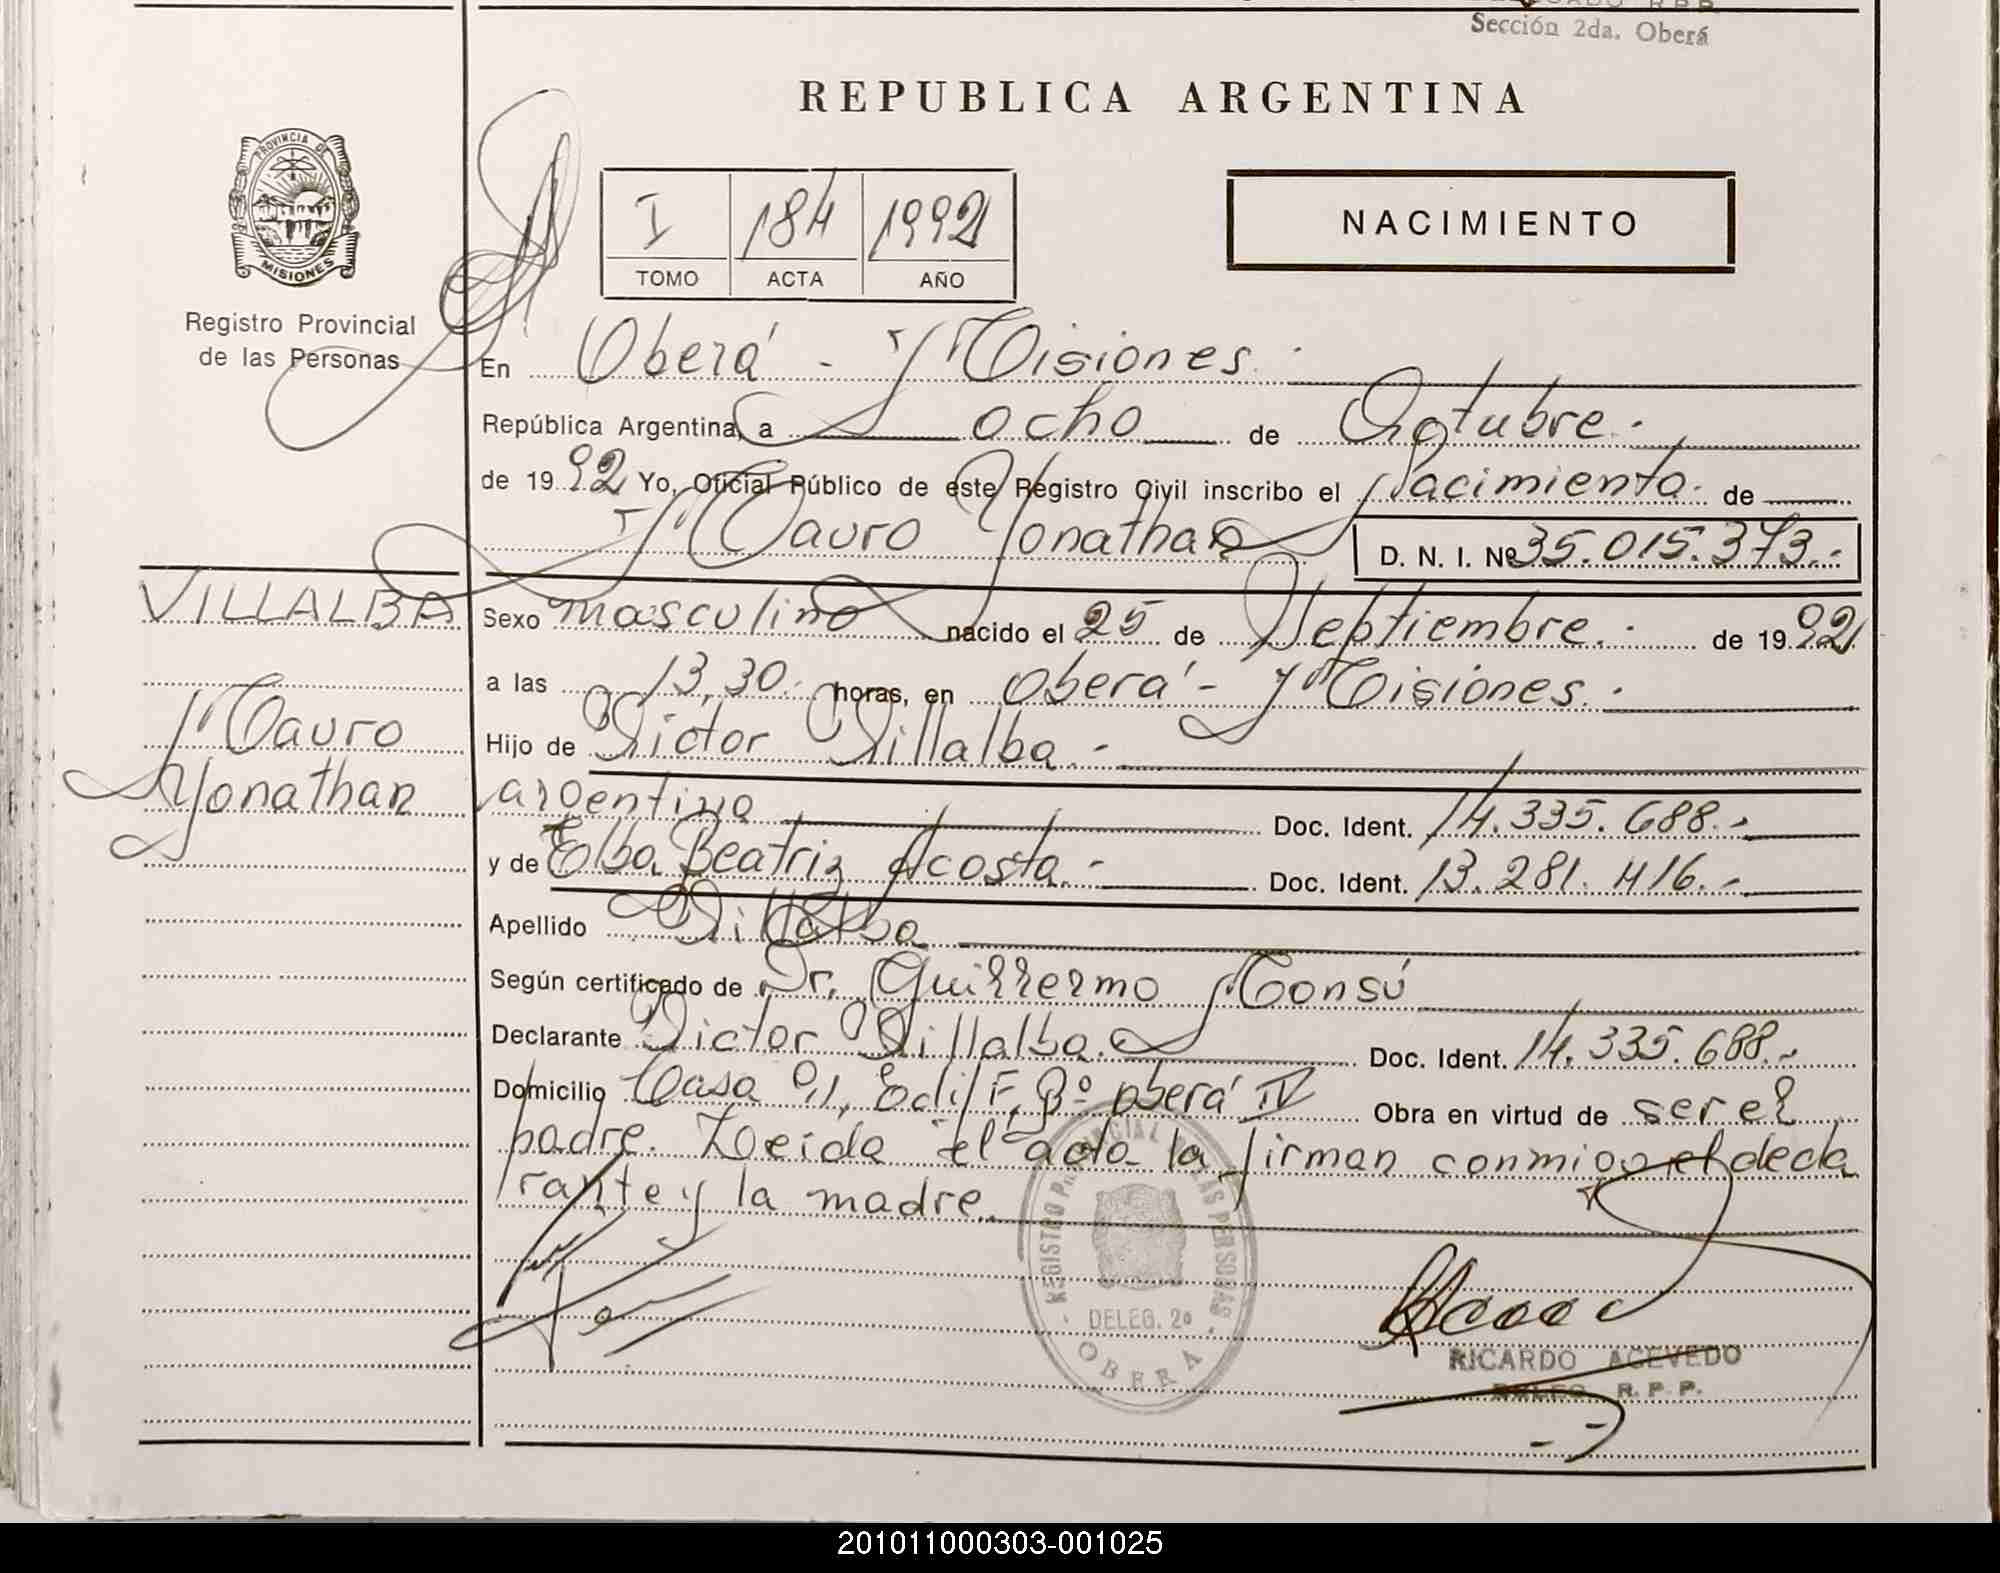 Sección 2da. Oberá
REPUBLICA ARGENTINA
PROVINCIA DE
MISIONES
Registro Provincial
de las Personas
I 184 1992
TOMO ACTA AÑO
NACIMIENTO
En Oberá - Misiones.
República Argentina, a ocho de Octubre.
de 1992 Yo, Oficial Público de este Registro Civil inscribo el Nacimiento. de
Mauro Yonathan D. N. I. Nº 35.015.373.-
VILLALBA
Mauro
Yonathan
Sexo masculino nacido el 25 de Septiembre. de 1992
a las 13,30. horas, en Oberá - Misiones.
Hijo de Victor Villalba.-
argentino Doc. Ident. 14.335.688.-
y de Elba Beatriz Acosta.- Doc. Ident. 13.281.416.-
Apellido Villalba
Según certificado de Dr. Guillermo Monsú
Declarante Victor Villalba. Doc. Ident. 14.335.688.-
Domicilio Casa 91, Edif F, Bº Oberá IV Obra en virtud de ser el
padre. Leida el acta la firman conmigo el decla
rante y la madre.
REGISTRO PROVINCIAL DE LAS PERSONAS
DELEG. 2º
OBERA
RICARDO ACEVEDO
DELEG. R. P. P.
201011000303-001025